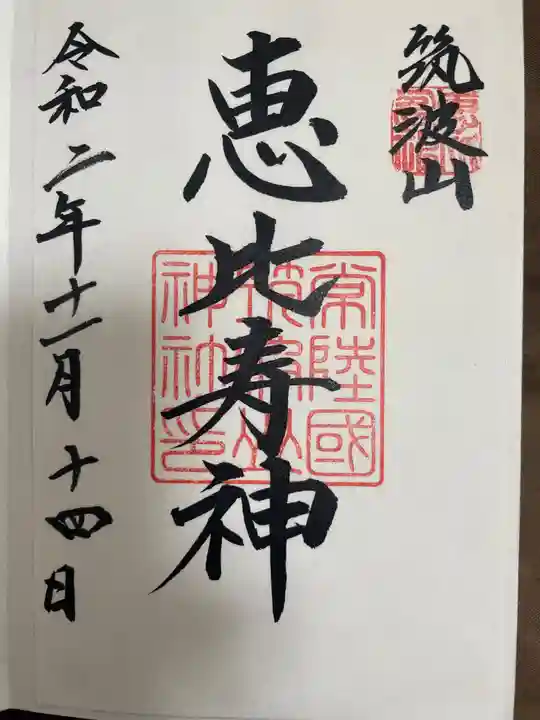 筑波山
恵比寿神
常陸國
筑波山
神社印
令和二年十一月十四日